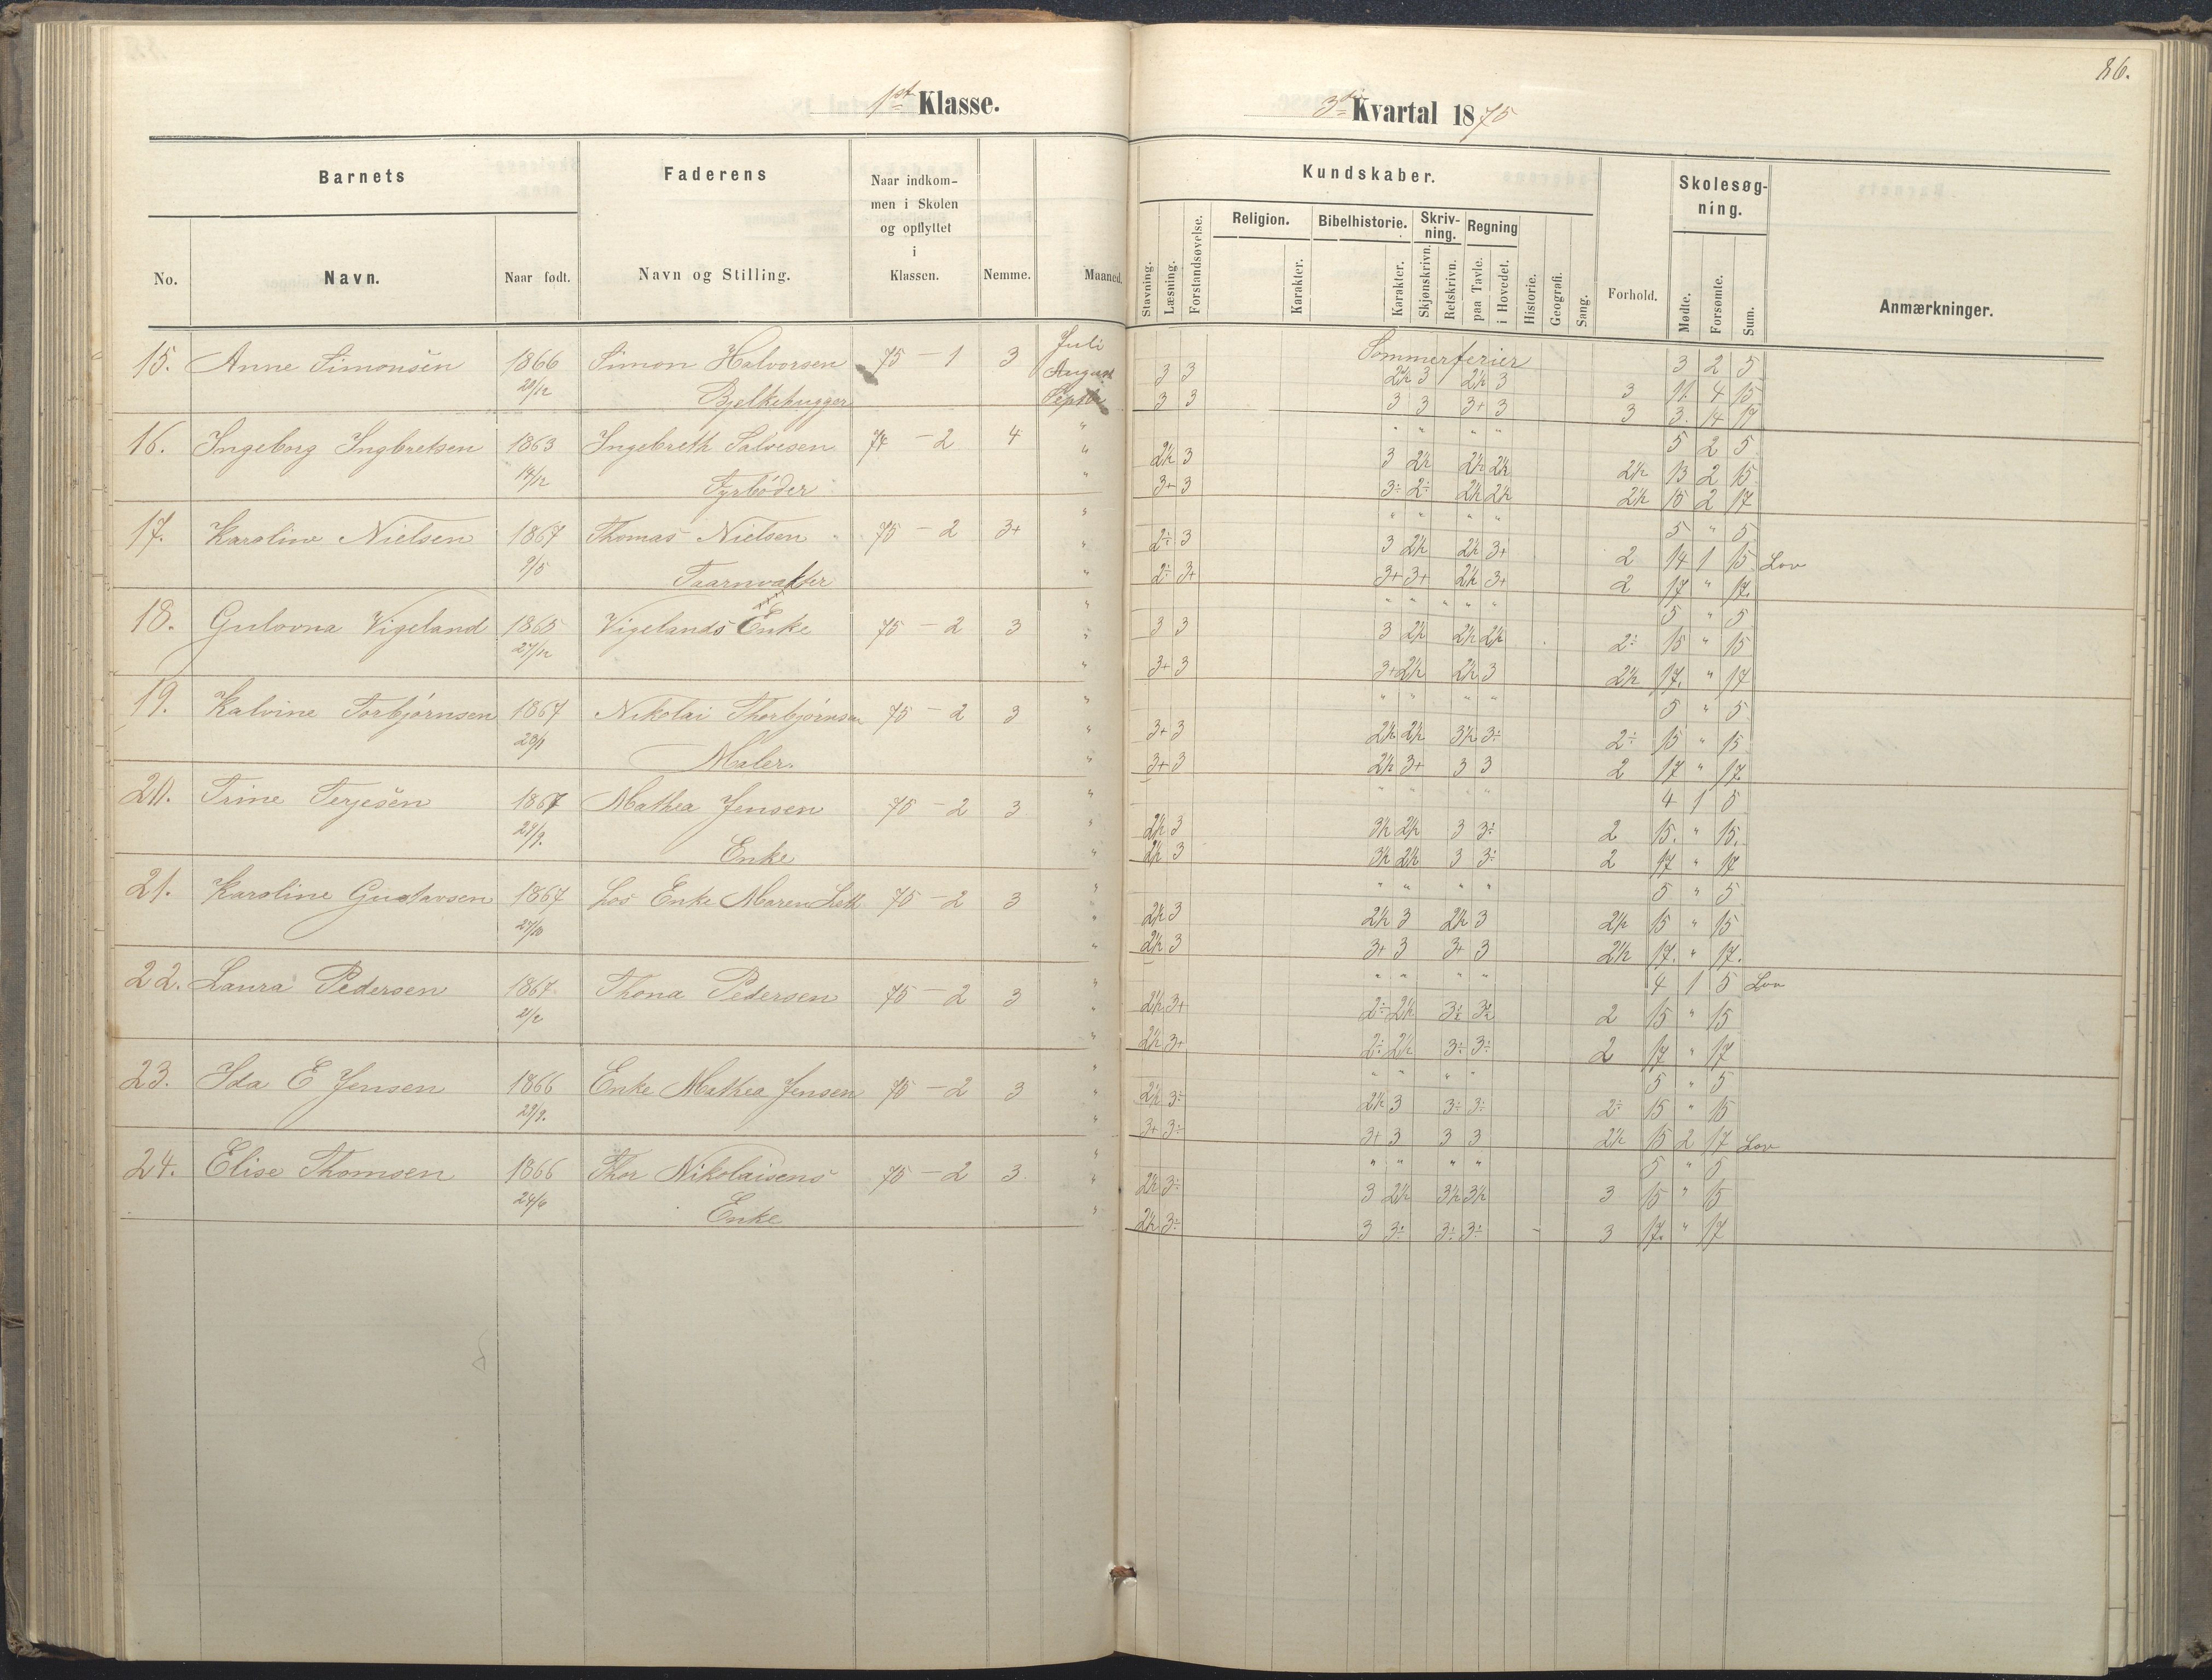 86.
1ste Klasse.
3die Kvartal 1875
Barnets
Faderens
Naar indkom-
men i Skolen
og opflyttet
i
Klassen.
No.
Navn.
Naar født.
Navn og Stilling.
Nemme.
Maaned.
Kundskaber.
Stavning.
Læsning.
Forstandsøvelse.
Religion.
Karakter.
Bibelhistorie.
Karakter.
Skriv-
ning.
Skjønskrivn.
Retskrivn.
Regning
paa Tavle.
i Hovedet.
Historie.
Geografi.
Sang.
Forhold.
Skolesøg-
ning.
Mødte.
Forsømte.
Sum.
Anmærkninger.
15. Anne Simonsen 1866 Simon Halvorsen 75 - 1 3 Juli Sommerferier 3 2 5
August 3 3 2½ 3 2½ 3 3 11. 4 15
Bjelkehugger Septbr 3 3 3 3 3+ 3 3 3. 14 17
16. Ingeborg Ingbretsen 1863 Ingebreth Salvesen 74 - 2 4 " " " " " 5 2 5
" 2½ 3 3 2½ 2½ 2½ 2½ 13 2 15
Fyrbøder " 3+ 3 3÷ 2÷ 2½ 2½ 2½ 15 2 17
17. Karoline Nielsen 1867 Thomas Nielsen 75 - 2 3+ " " " " " 5 " 5
9/5 " 2÷ 3 3 2½ 2½ 3+ 2 14 1 15 Lov
Taarnvakter " 2÷ 3+ 3+ 3+ 2½ 3+ 2 17 " 17.
18. Gulovna Vigeland 1865 Vigelands Enke 75 - 2 3 " " " " " 5 " 5
27/12 " 3 3 3 2½ 2½ 2½ 2÷ 15 " 15
" 3+ 3 3+ 2½ 2½ 3 2½ 17. " 17
19. Kalvine Torbjørnsen 1867 Nikolai Thorbjørnsen 75 - 2 3 " " " " " 5 " 5
" 3+ 3 2½ 2½ 3½ 3÷ 2÷ 15 " 15
Maler. " 3+ 3 2½ 3+ 3 3 2 17 " 17.
20. Trine Terjesen 1867 Mathea Jensen 75 - 2 3 " " " " " 4 1 5
" 2½ 3 3½ 2½ 3 3÷ 2 15. " 15.
Enke " 2½ 3 3½ 2½ 3 3÷ 2 17 " 17
21. Karoline Gustavsen 1867 Los Enke Maren 75 - 2 3 " " " " " 5 " 5
27/10 " 2½ 3 2½ 3 2½ 3 2½ 15 " 15
" 2½ 3 3+ 3 3+ 3 2½ 17. " 17.
22. Laura Pedersen 1867 Thona Pedersen 75 - 2 3 " " " " " 4 1 5 Lov
" 2½ 3+ 2÷ 2½ 3½ 3½ 2 15 " 15
" 2½ 3+ 2÷ 2½ 3÷ 3÷ 2 17 " 17
23. Ida E Jensen 1866 Enke Mathea Jensen 75 - 2 3 " " " " " 5 " 5
" 2½ 3÷ 2½ 3 3÷ 3÷ 2÷ 15 " 15
" 3+ 3÷ 3+ 3 3 3 2½ 15 2 17 Lov
24. Elise Thomsen 1866 Thor Nikolaisens 75 - 2 3. " " " " " 5 " 5
24/6 " 2½ 3÷ 3 2½ 3½ 3½ 3 15 " 15
Enke " 2½ 3÷ 3 3÷ 3÷ 3÷ 3 17. " 17